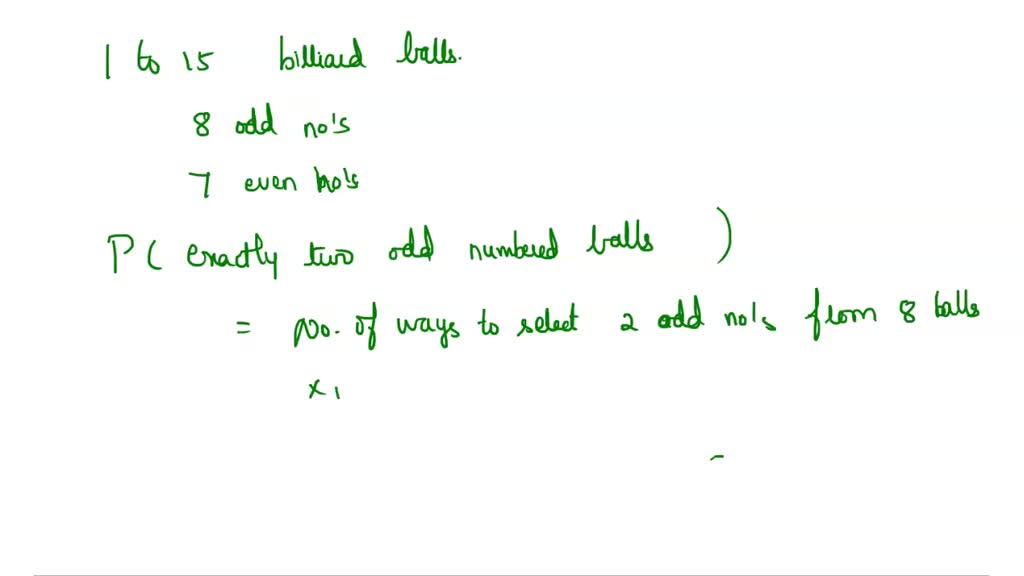 1 to 15 billiard balls.
8 odd no's
7 even no's
P( exactly two odd numbered balls )
= No. of ways to select 2 odd no's from 8 balls
x 1